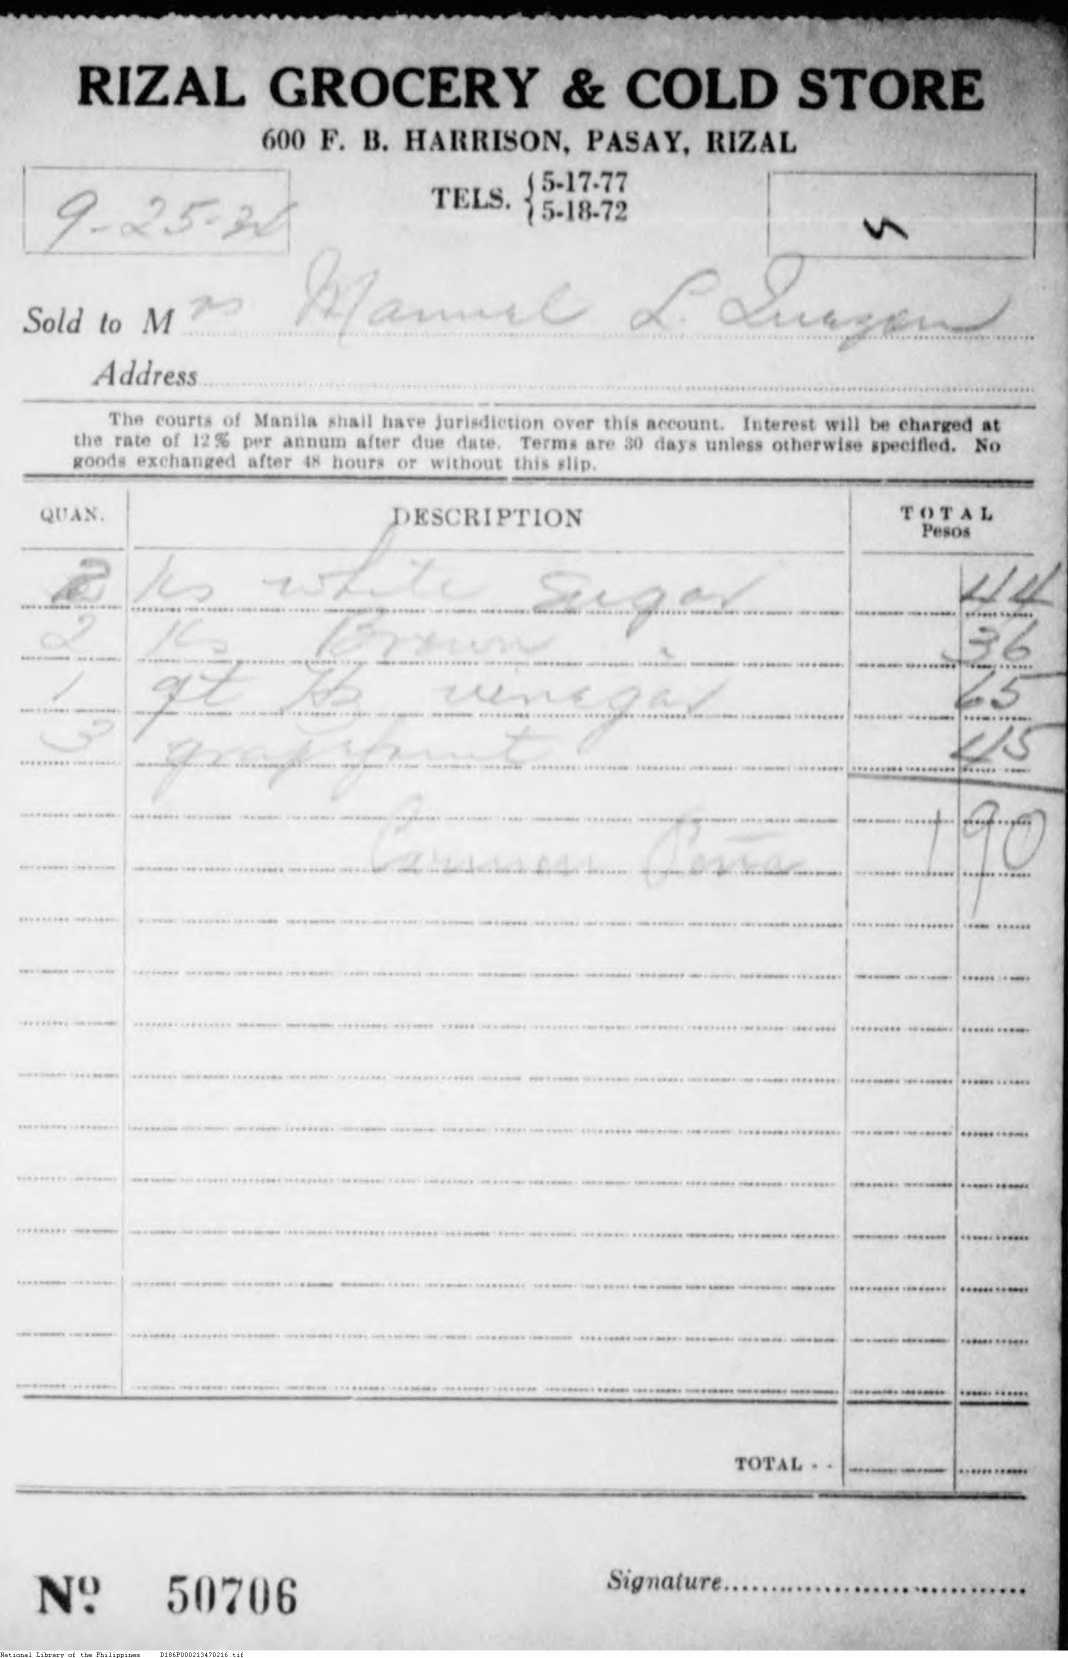 RIZAL GROCERY & COLD STORE
600 F. B. HARRISON, PASAY, RIZAL
TELS. { 5-17-77
5-18-72
9-25-
Sold to Mrs Manuel L. Quezon
Address
The courts of Manila shall have jurisdiction over this account. Interest will be charged at
the rate of 12% per annum after due date. Terms are 30 days unless otherwise specified. No
goods exchanged after 48 hours or without this slip.
QUAN. DESCRIPTION TOTAL
Pesos
2 Ks white sugar 44
2 Ks Brown " 36
1 qt vinegar 65
3 grapefruit 45
1 90
Carmen Peña
TOTAL - -
Nº 50706 Signature
National Library of the Philippines D186P000213470216.tif